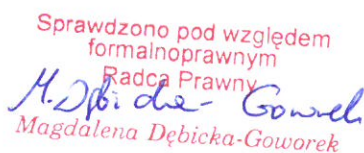 Sprawdzono pod względem
formalnoprawnym
Radca Prawny
M. Dębicka-Goworek
Magdalena Dębicka-Goworek